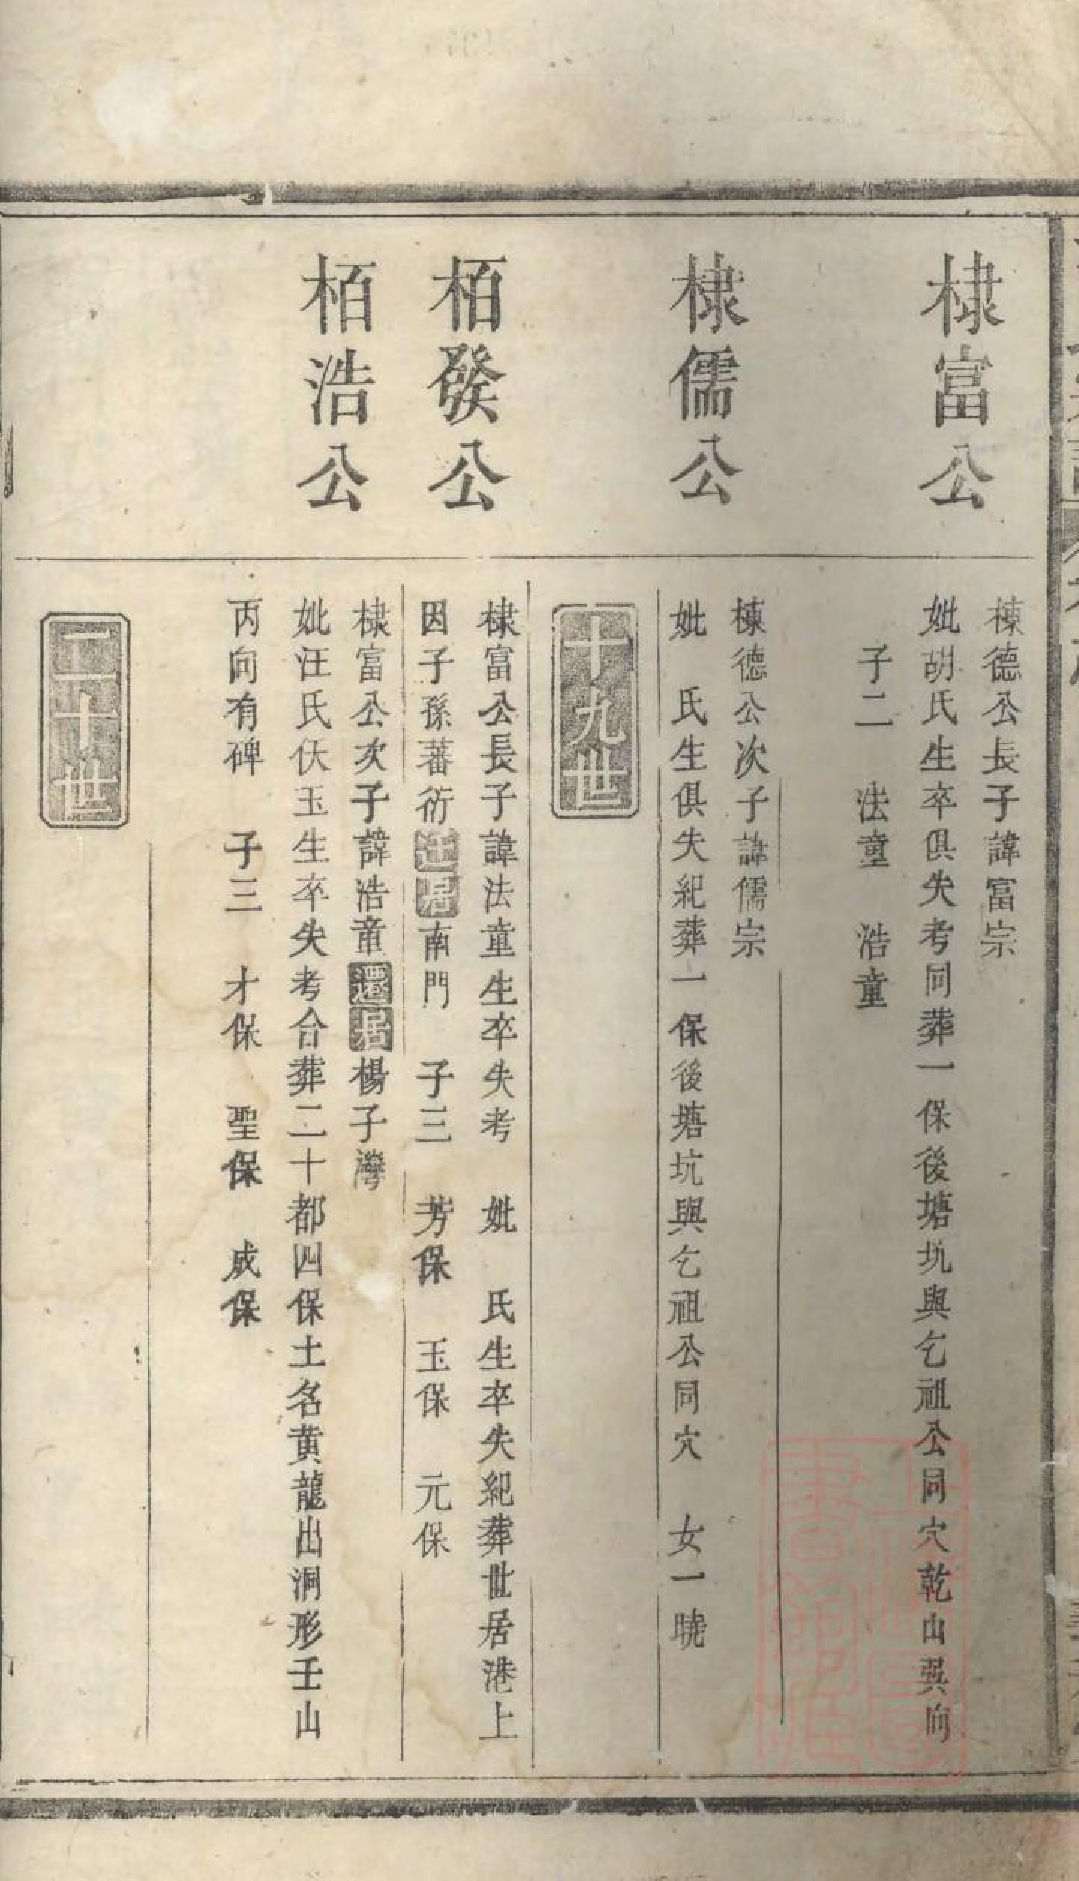 棣富公
棟德公長子諱富宗
妣胡氏生卒俱失考同葬一保後塘坑與乞祖公同穴乾山巽向
子二　法童　浩童
棣儒公
棟德公次子諱儒宗
妣　氏生俱失紀葬一保後塘坑與乞祖公同穴　女一曉
十九世
栢發公
棣富公長子諱法童生卒失考　妣　氏生卒失紀葬世居港上
因子孫蕃衍迁居南門　子三　芳保　玉保　元保
栢浩公
棣富公次子諱浩童還居楊子灣
妣汪氏伏玉生卒失考合葬二十都四保土名黄龍出洞形壬山
丙向有碑　子三　才保　聖保　成保
二十世